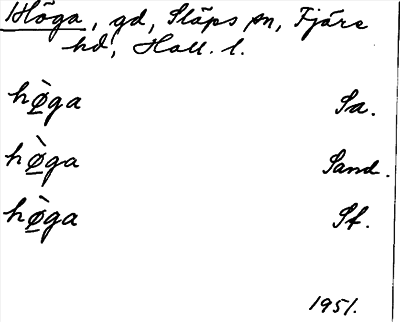 Höga, gd, Släps sn, Fjäre
hd, Hall. l.
hø̀ga Sa.
hø̀ga Sand.
hø̀ga St.
1951.